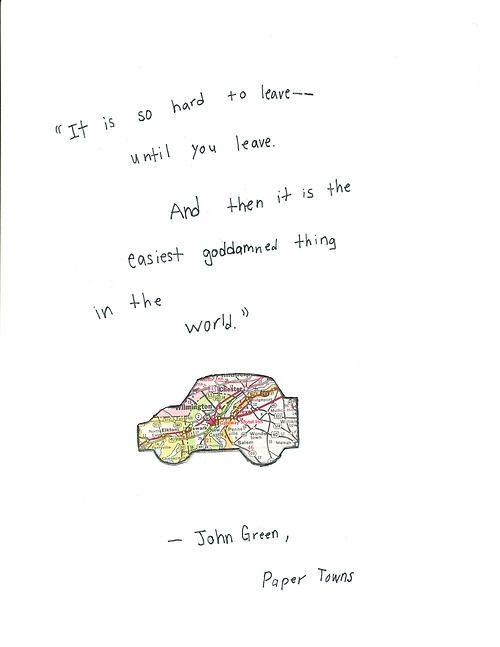 "It is so hard to leave--
until you leave.
And then it is the
easiest goddamned thing
in the
world."
Chester
Wilmington
Elkton
Salem
- John Green,
Paper Towns